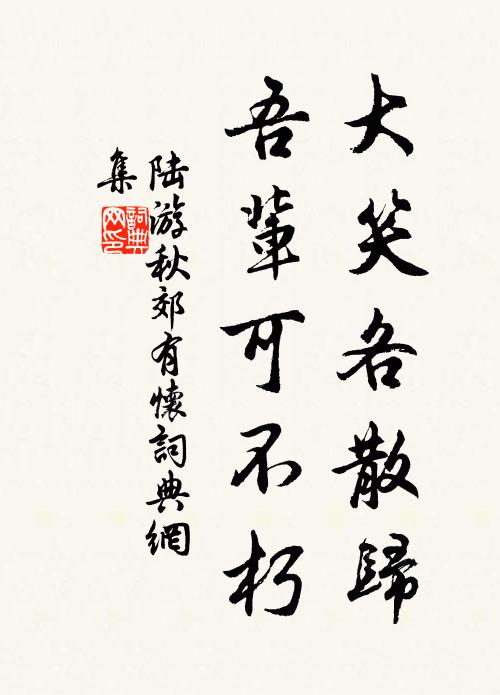 大笑各散歸
吾輩可不朽
陆游秋郊有懷詞典網
集
詞典
网印